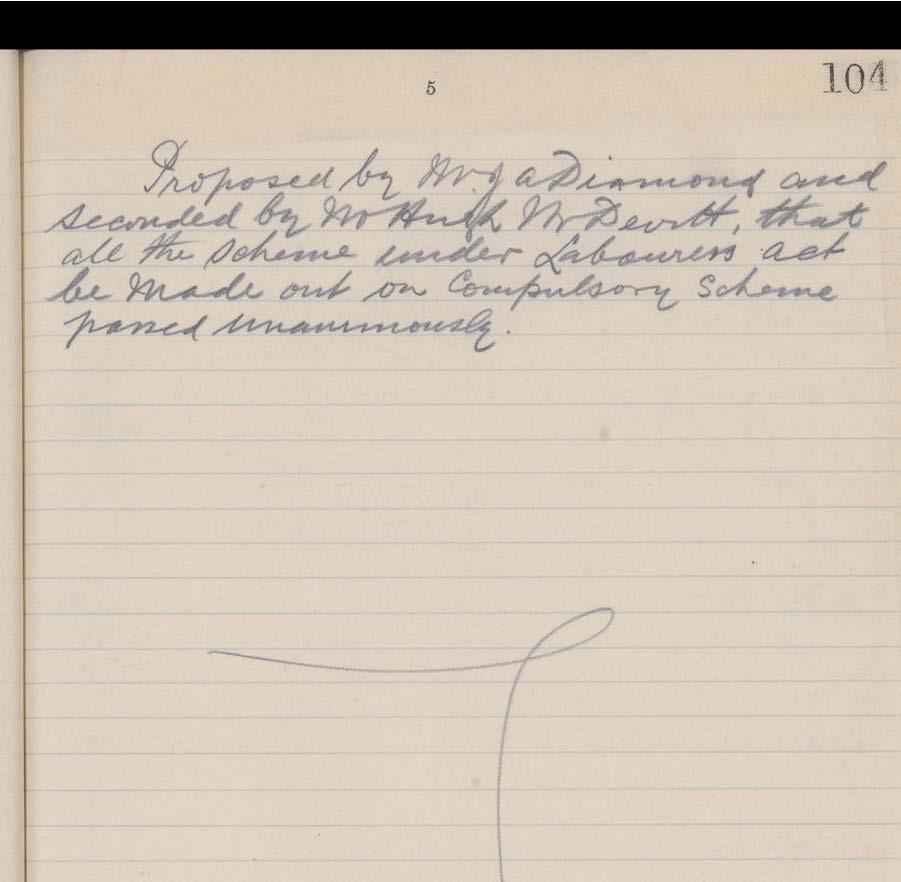 5
104
Proposed by Mr J A Diamond and
seconded by Mr Hugh McDevitt, that
all the Scheme under Labourers act
be made out on Compulsory Scheme
passed unanimously.